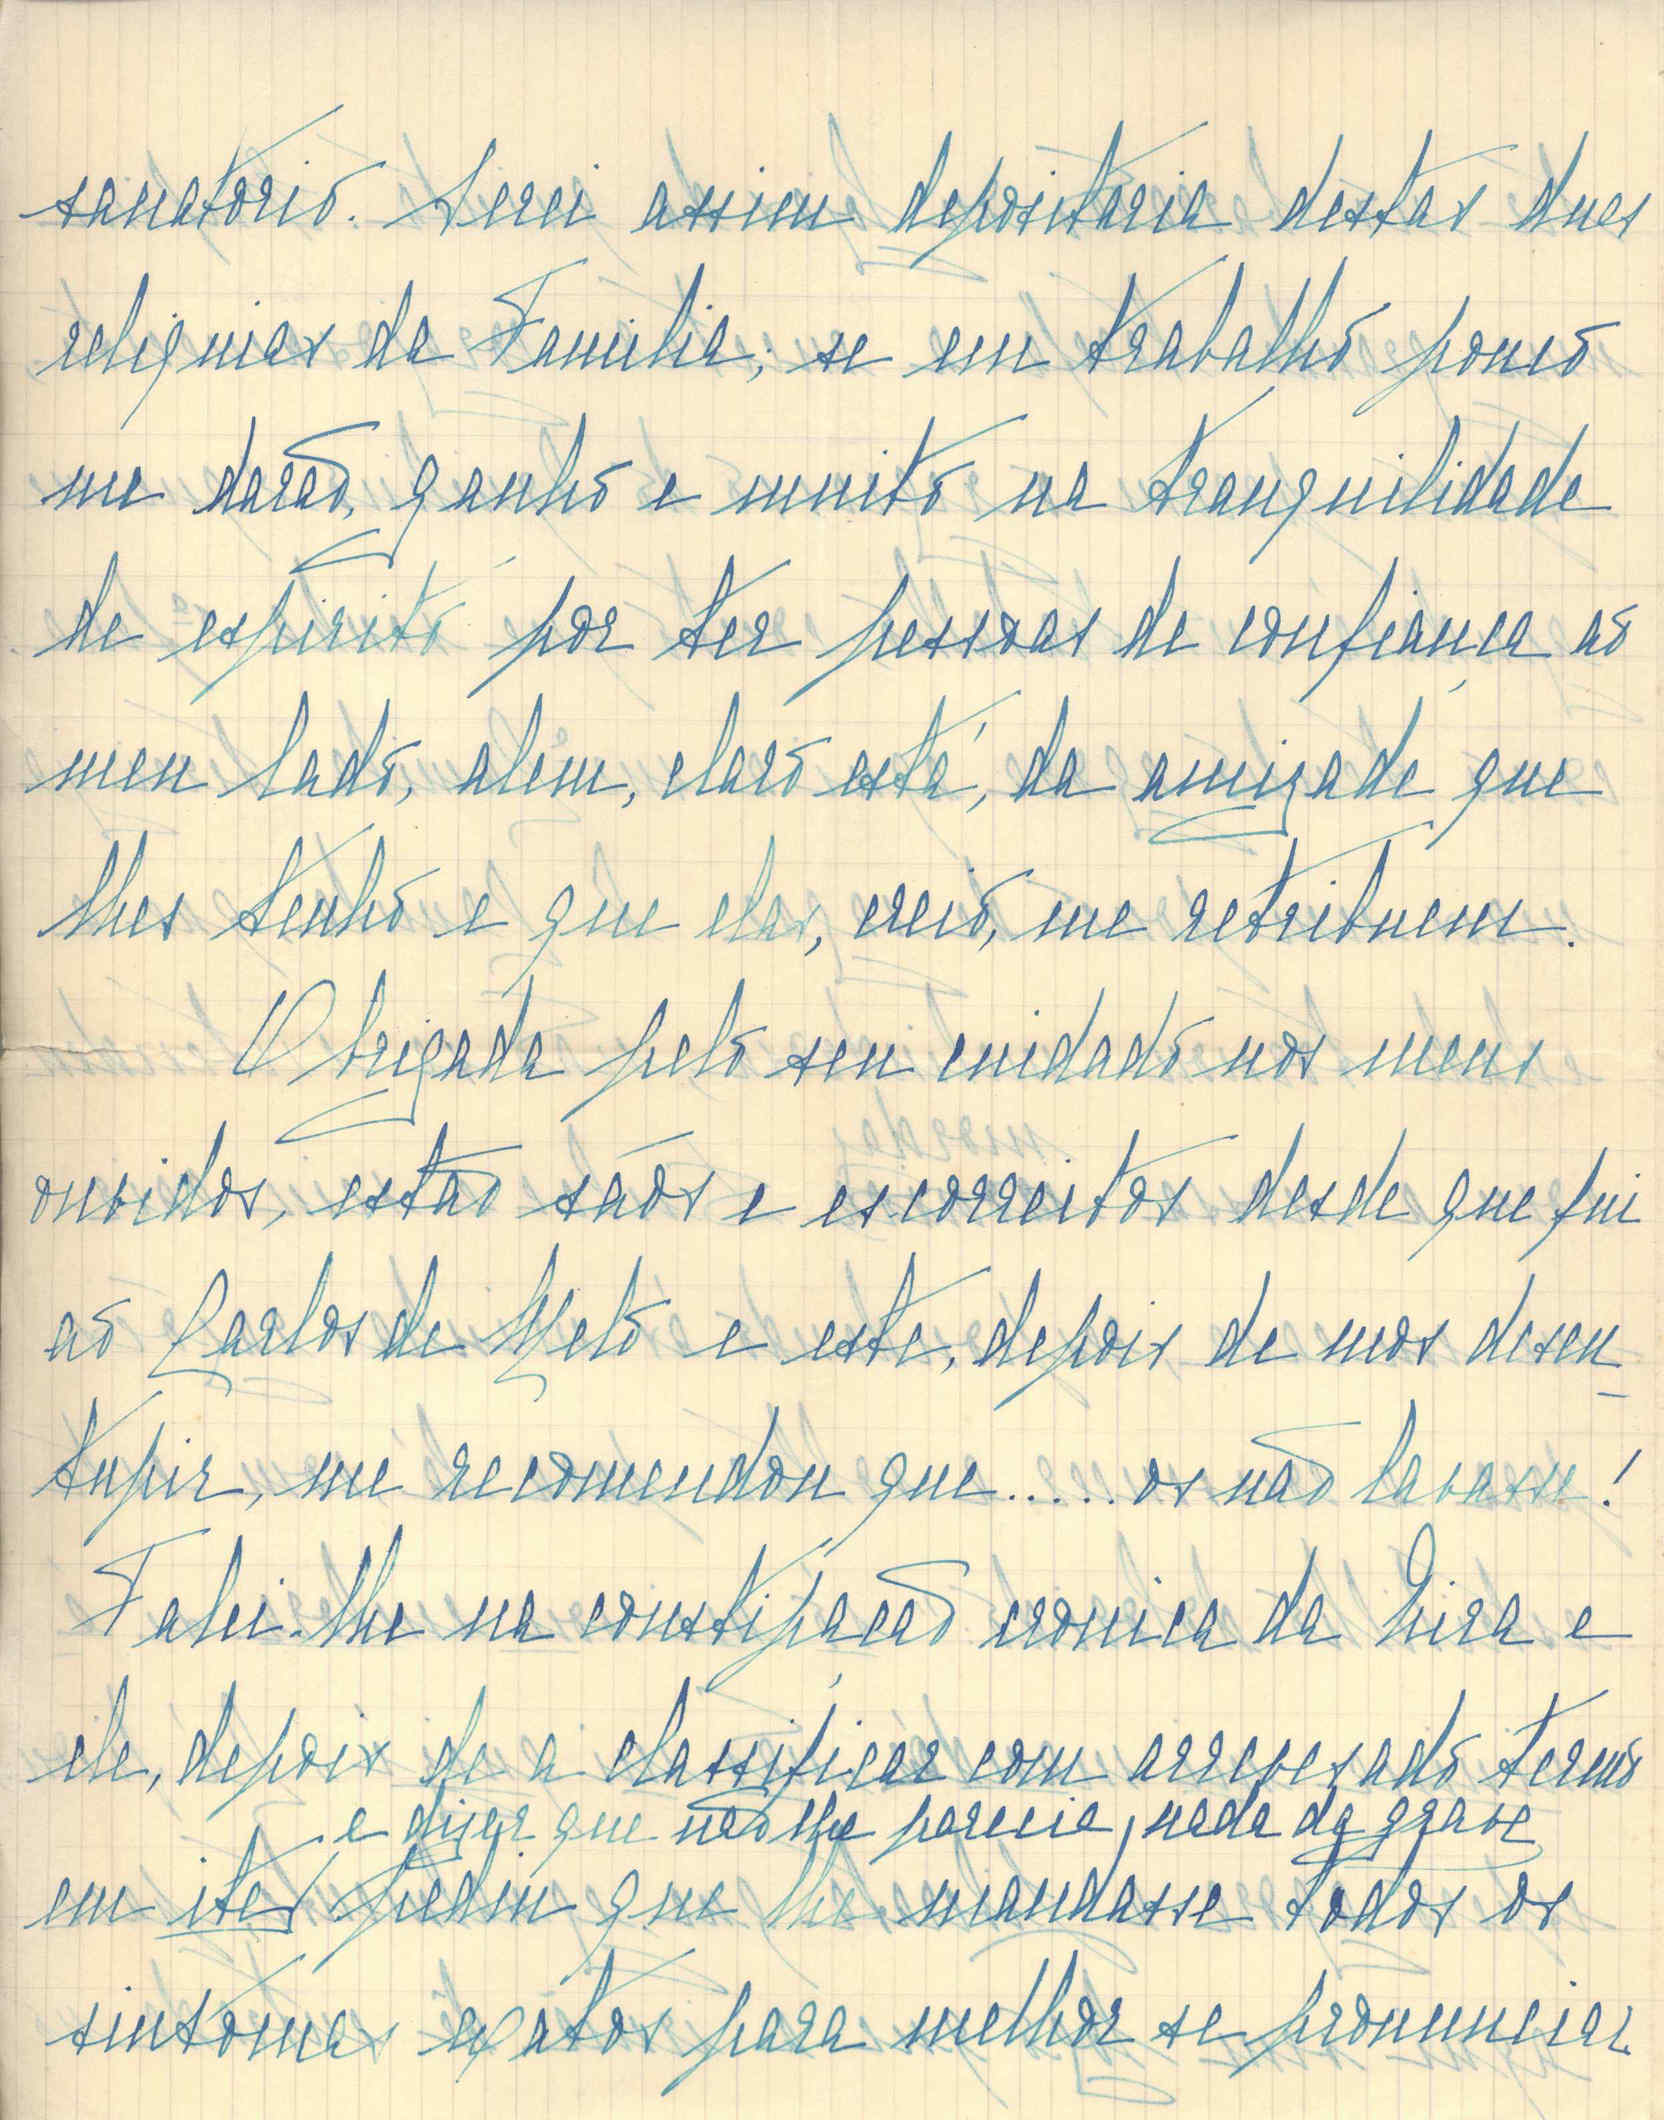 sanatorio. Serei assim depositaria destas duas
reliquias da Familia; se em trabalho pouco
me darão, ganho e muito na tranquilidade
de espirito por ter pessoas de confiança ao
meu lado, alem, claro está, da amizade que
lhes tenho e que elas, creio, me retribuem.
Obrigada pelo seu cuidado nos meus
ouvidos, estão sãos e escorreitos desde que fui
ao Carlos de Melo e este, depois de mos desen-
tupir, me recomendou que..... os não lavasse!
Falei-lhe na constipação cronica da Nira e
ele, depois de a classificar com arrevesado termo
e dizer que não lhe parecia nada de grave
em ites pediu que lhe mandasse todos os
sintomas exatos para melhor se pronunciar.